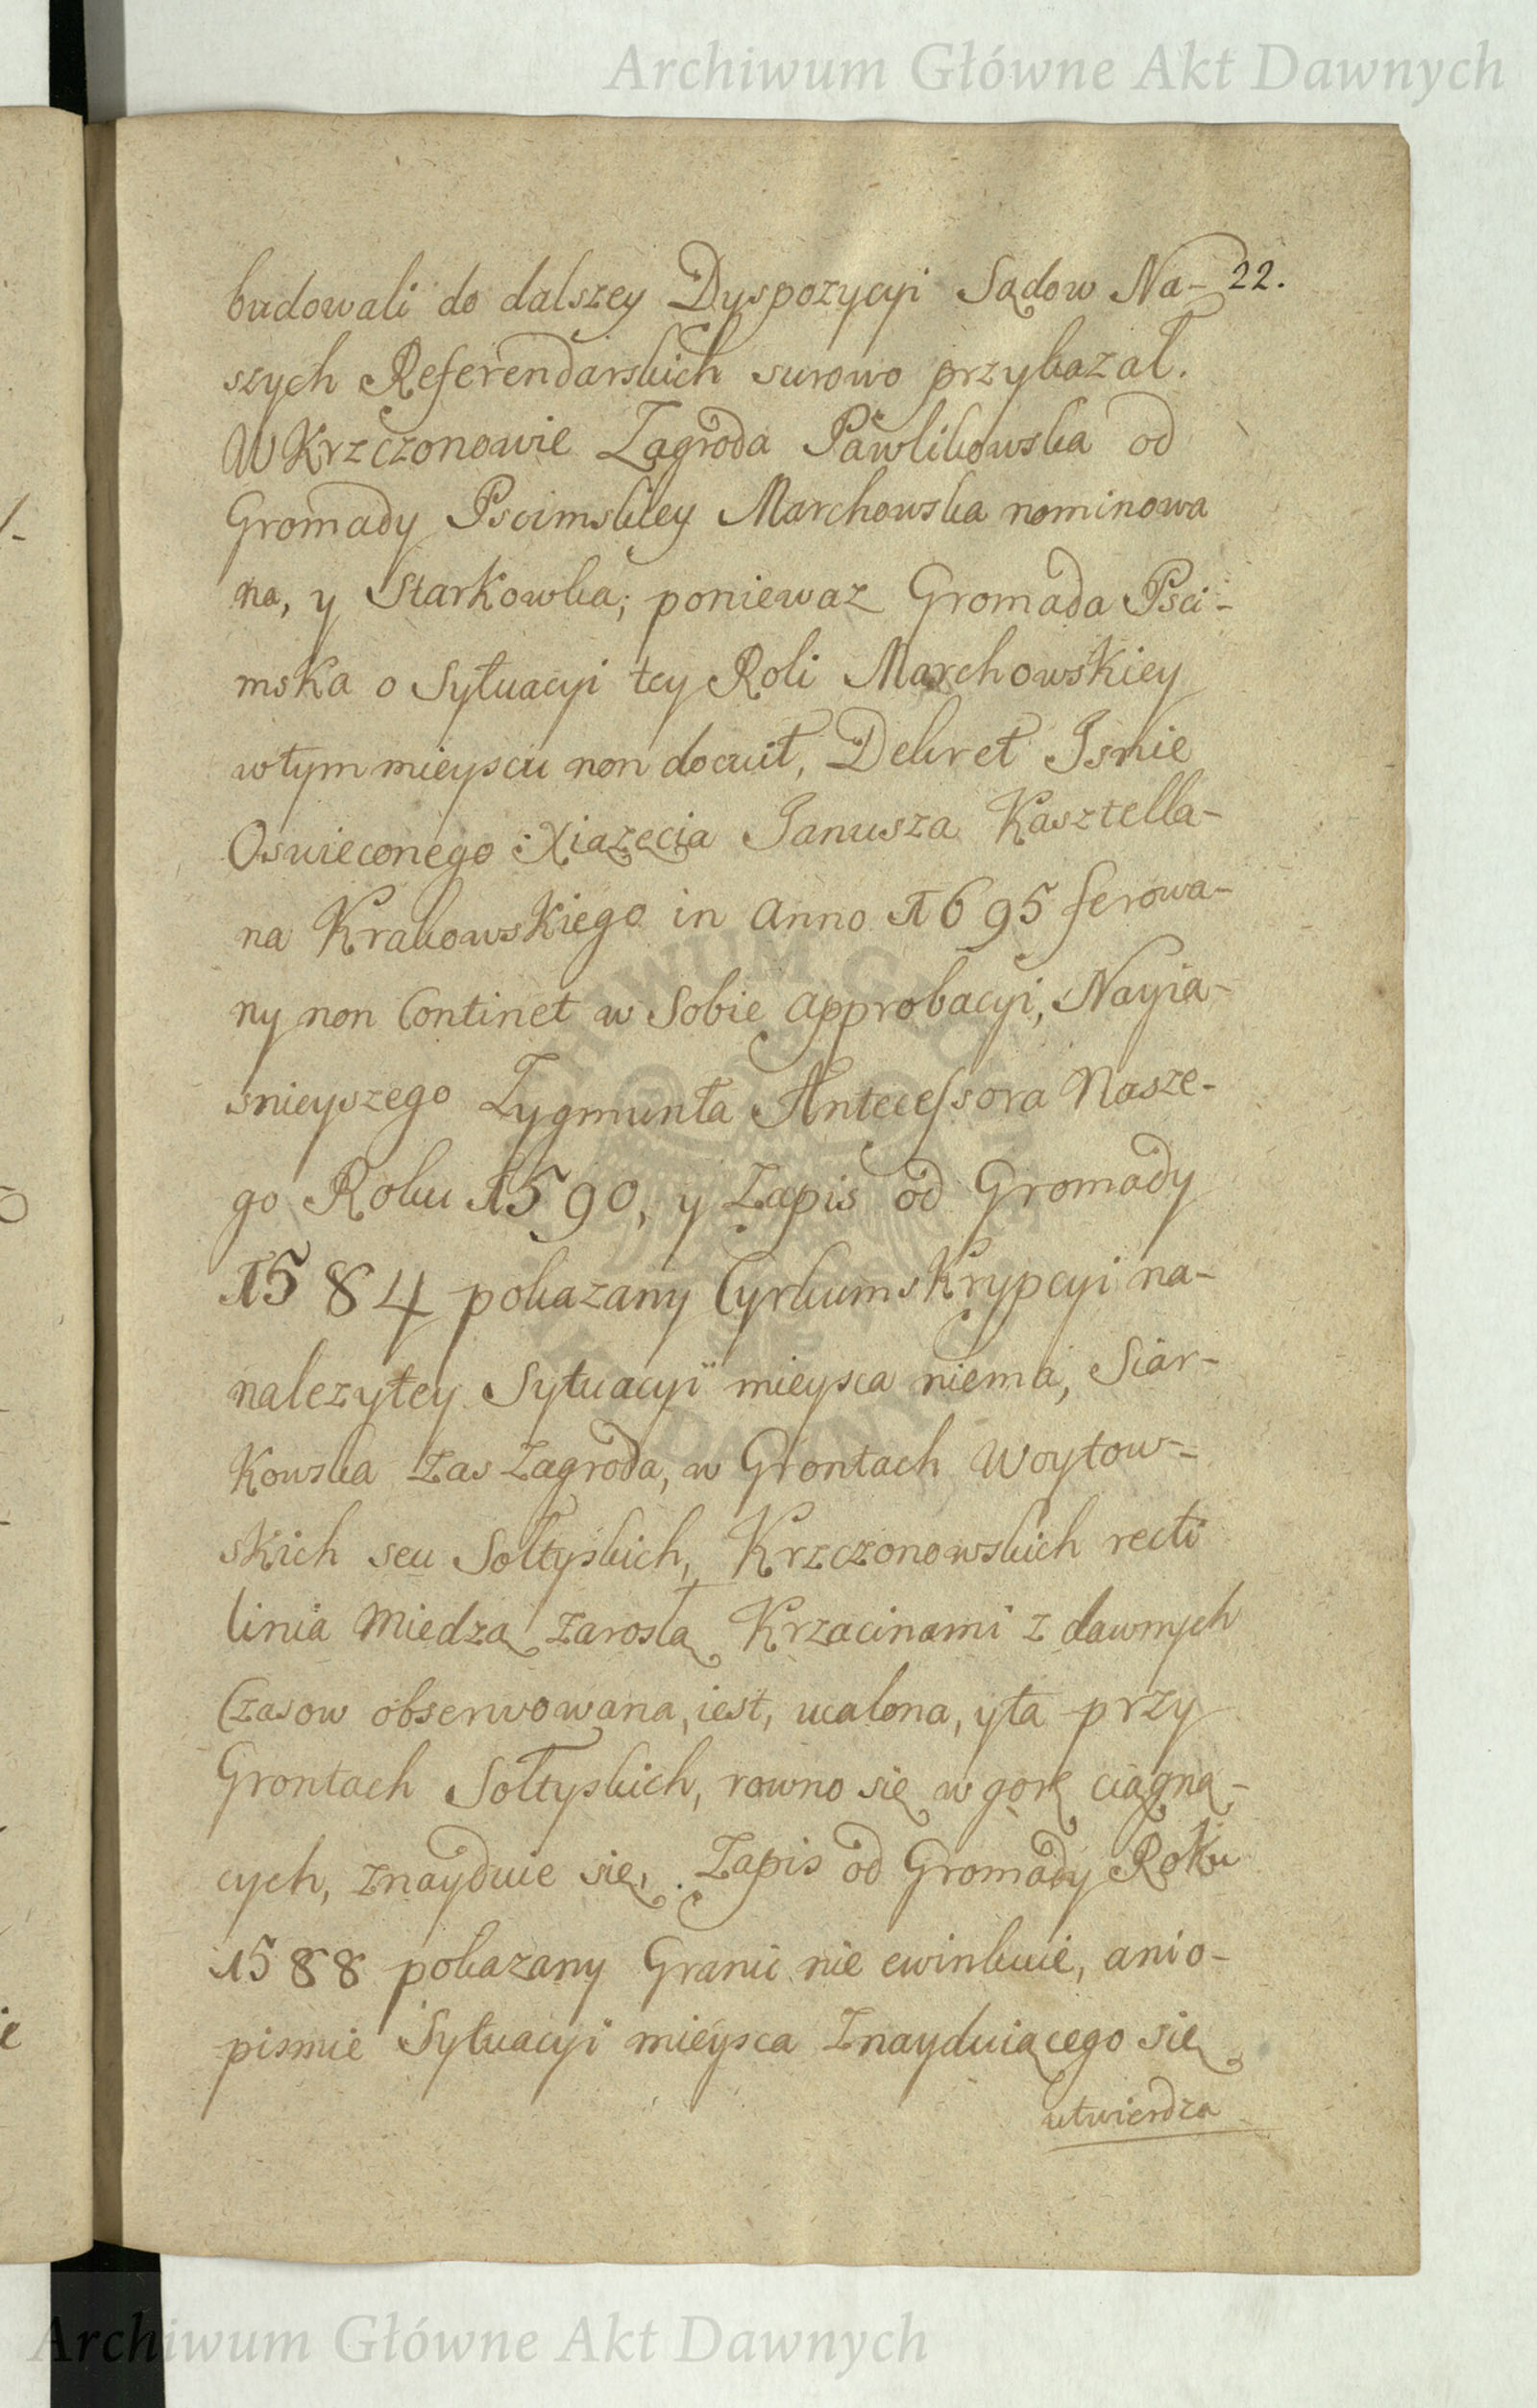 Archiwum Główne Akt Dawnych
budowali do dalszey Dyspozycyi Sądow Na- 22.
szych Referendarskich surowo przykazał.
W Krzczonowie Zagroda Pawlikowska od
Gromady Pscimskiey Marchowska nominowa
na, y Starkowka; poniewaz Gromada Psci-
mska o Sytuacyi tey Roli Marchowskiey
w tym mieyscu non docuit, Dekret Jsnie
Oswieconego Xiązęcia Janusza Kasztella-
na Krakowskiego in Anno 1695 ferowa-
ny non Continet w Sobie Approbacyi, Nayia-
snieyszego Zygmunta Antecessora Nasze-
go Roku 1590, y Zapis od Gromady
1584 pokazany Cyrkumskrypcyi na-
nalezytey Sytuacyi mieysca niema, Siar-
kowska zas Zagroda, w Grontach Woytow-
skich seu Sołtyskich, Krzczonowskich recti
linia Miedzą zarosłą Krzacinami z dawnych
Czasow obserwowana, iest, ucalona, y ta przy
Grontach Sołtyskich, rowno się w gorę ciągną-
cych, znayduie się. Zapis od Gromady Roku
1588 pokazany Granic nie ewinkuie, ani o-
pismie Sytuacyi mieysca znayduiącego się
utwierdza
Archiwum Główne Akt Dawnych